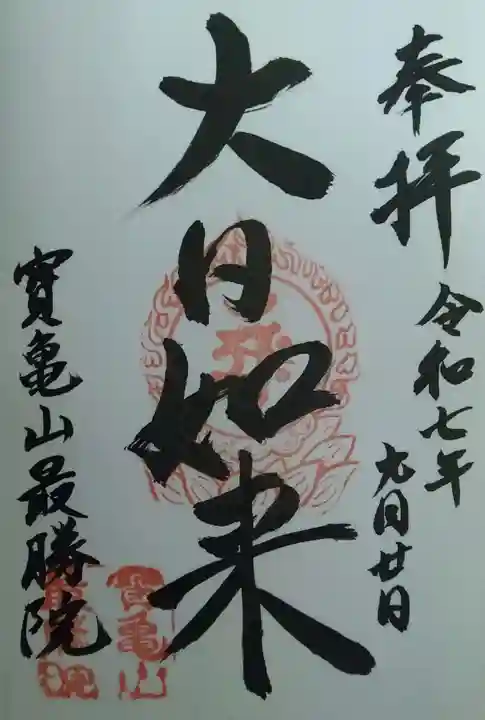 奉拝
令和七年
九月廿日
大日如来
寳亀山最勝院
寶亀山